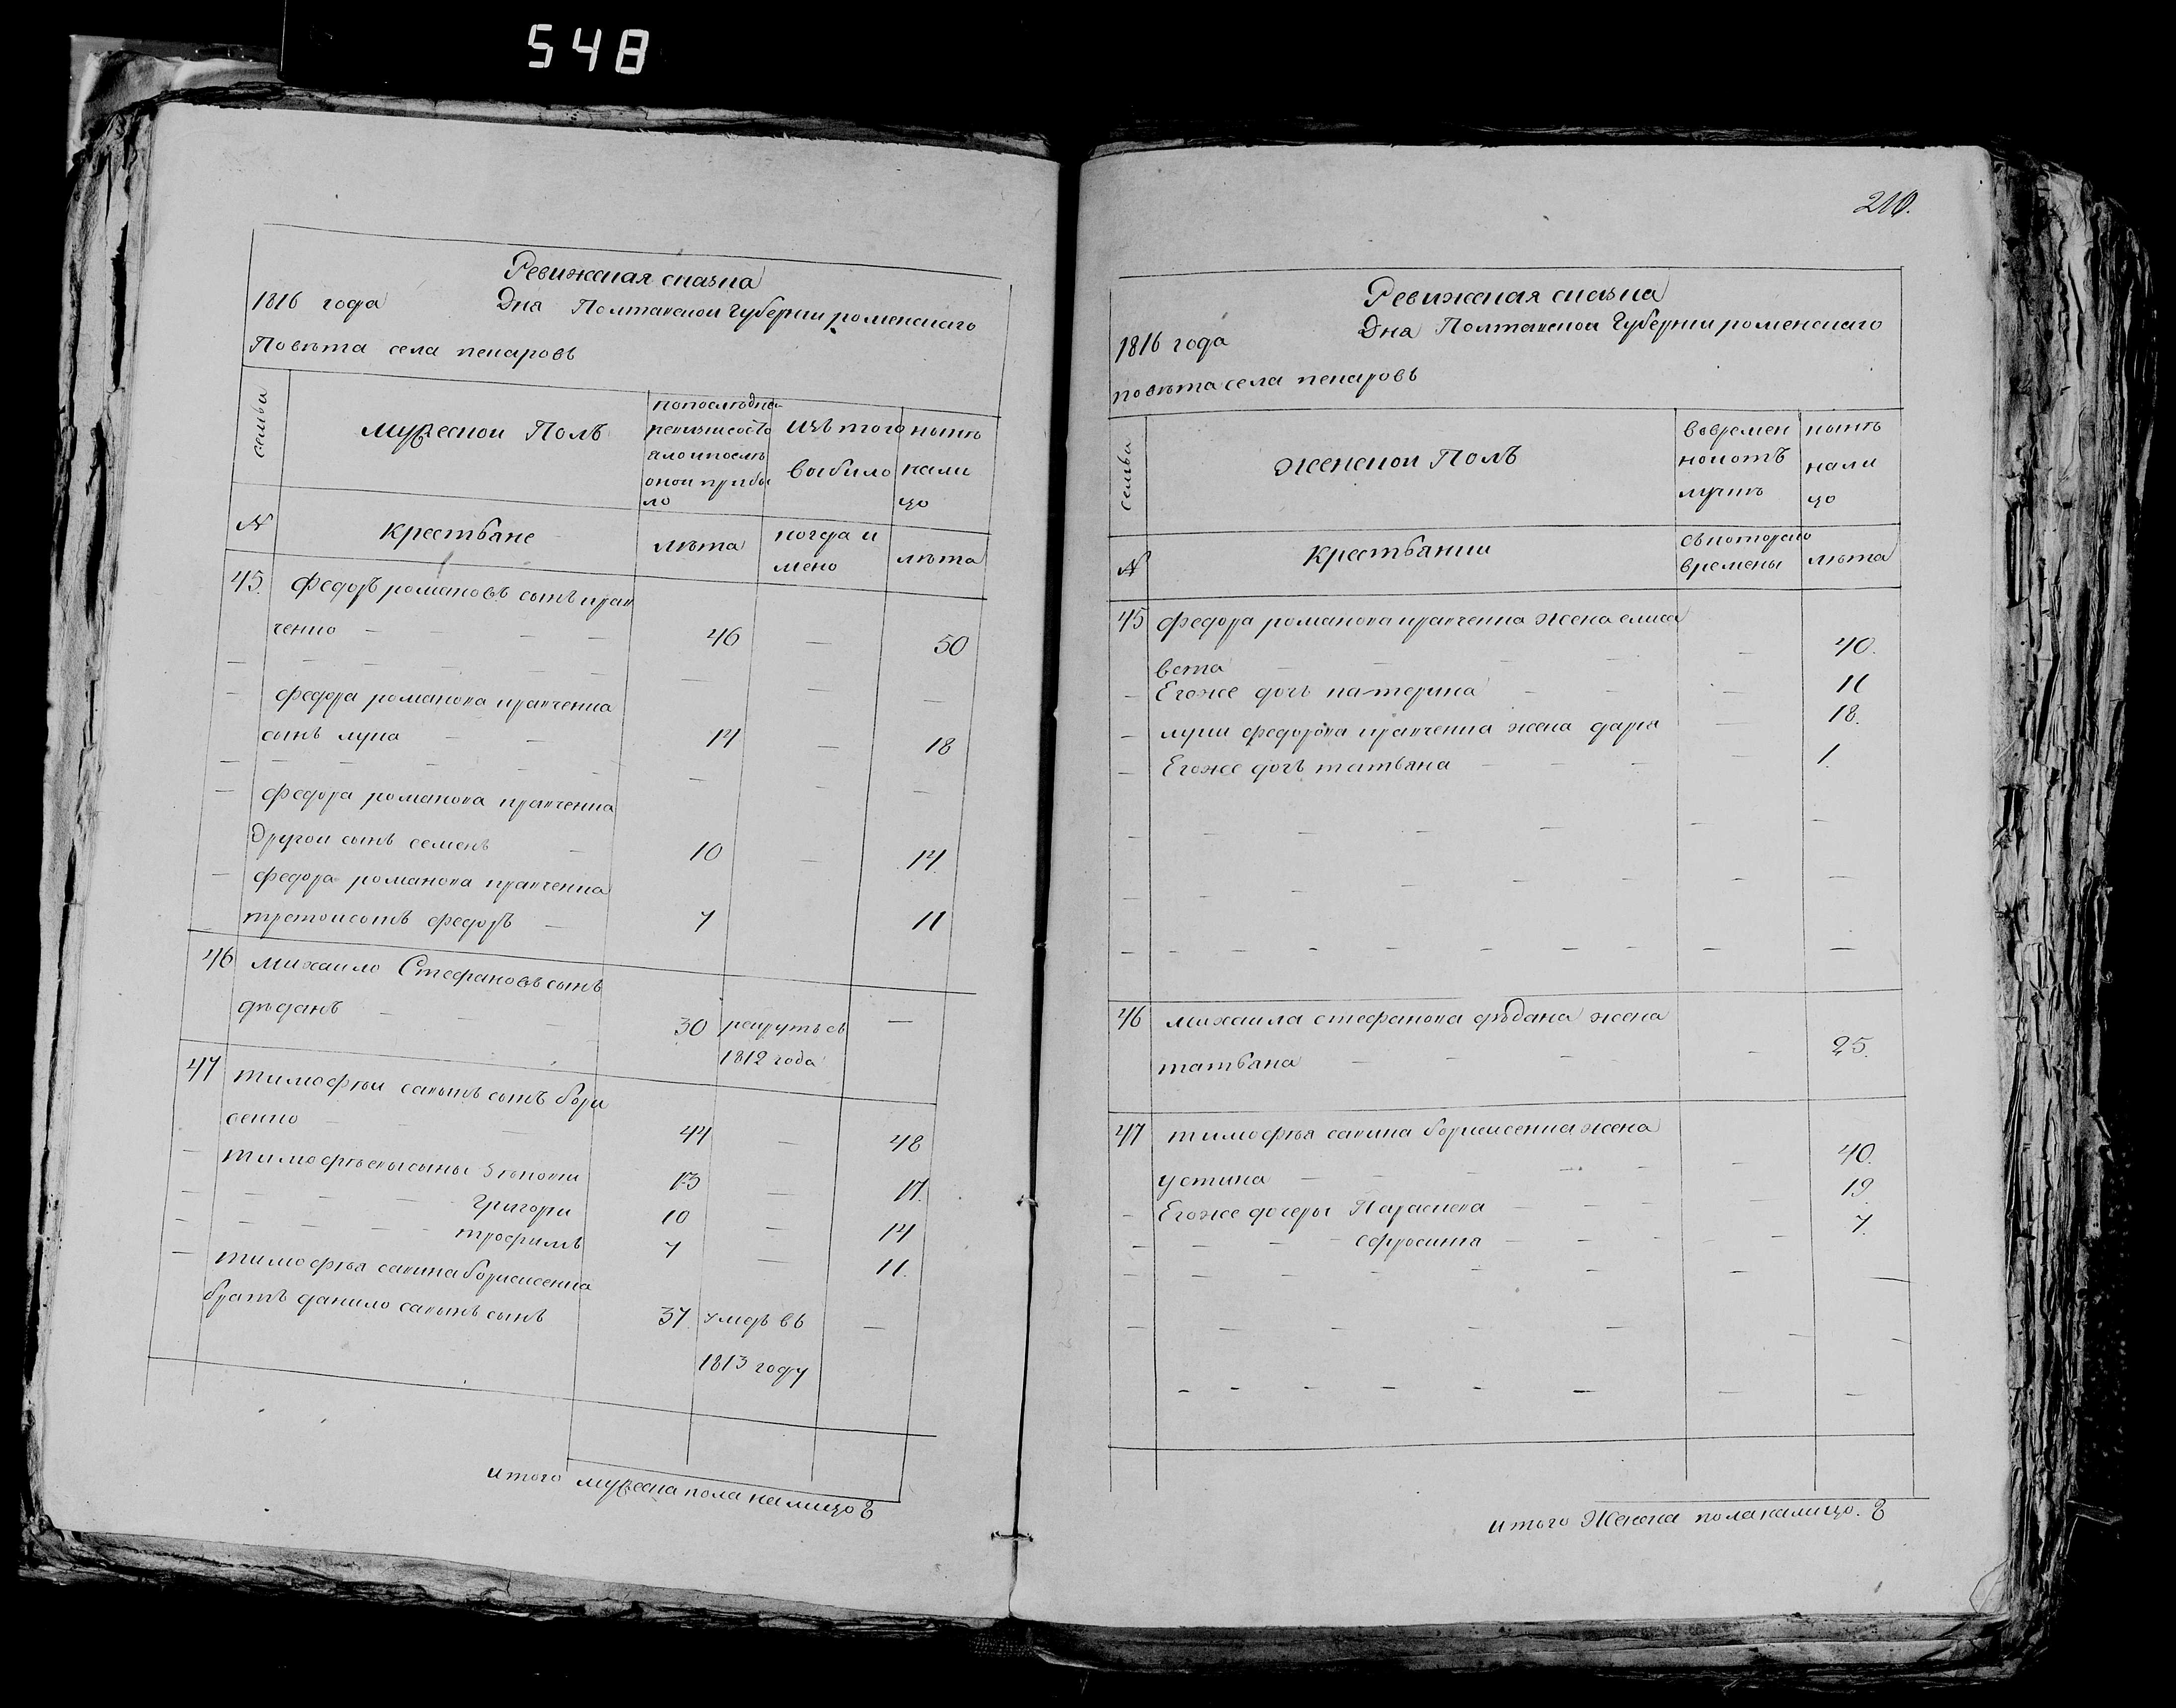 548
Ревижская сказка
1816 года Дня Полтавской Губернии роменскаго
Повѣта села пекаровъ
семьи
мужескои Полъ
попоследне
ревизиісосто
ало ипослѣ
онои прибы
ло
изъ того
выбило
нынѣ
нали
цо
№
крестьяне
лѣта
когда и
мено
лѣта
45. федоръ романовъ сынъ крав
ченко — 46 — 50
федора романова кравченка
сынъ лука — 14 — 18
федора романова кравченка
другои сынъ семенъ — 10 — 14.
федора романова кравченка
третоисынъ федоръ — 7 11
46 михаило Стефановъ сынъ
дѣданъ — 30 рекрутъ съ —
1812 года
47 тимофѣи савинъ сынъ бори
сенко — 44 — 48
тимофѣевысыны Зѣновии 13 — 17.
григори 10 — 14
трофимъ 7 — 11.
тимофѣя савина борисенка
братъ данило савинъ сынъ 37. умръ въ —
1813 году
итого мужеска пола налицо 8
210.
Ревижская сказка
1816 года Дня Полтавской Губернии роменскаго
повѣта села пекаровъ
семьи
женскои Полъ
вовремен
ноиотъ
лучкѣ
нынѣ
нали
цо
№
крестьянки
съкотораго
времены
лѣта
45 федора романова кравченка жена елиса
вета — 40.
Егоже дочь катерина — 11
луки федорова кравченка жена даря — 18.
Егоже дочъ татьяна — 1.
46 михаила стефанова дѣдана жена
татьяна — 25.
47 тимофѣя савина борисенка жена
устина — 40.
Егоже дочеры Параскева — 19
ефросиния — 7.
итого Женска пола налицо. 8